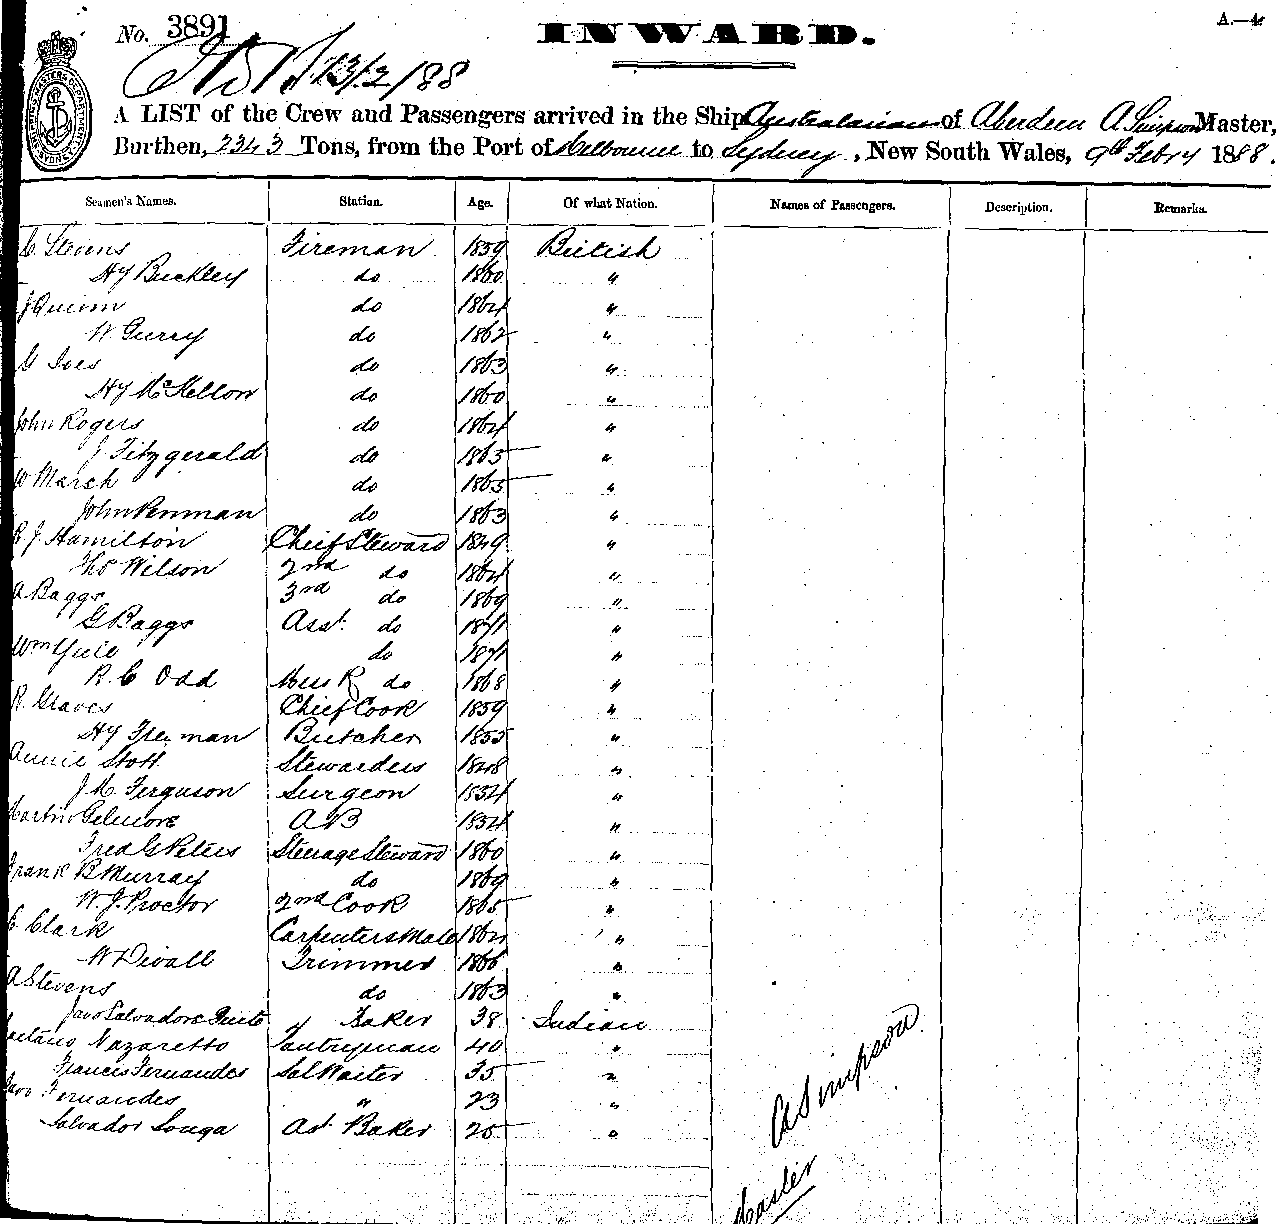 No. 3891
INWARD.
A.—4
13/2/88
A LIST of the Crew and Passengers arrived in the Ship Australasian of Aberdeen A Simpson Master,
Burthen, 2343 Tons, from the Port of Melbourne to Sydney, New South Wales, 9th Febry 1888.
Seamen's Names. Station. Age. Of what Nation. Names of Passengers. Description. Remarks.
C Stevens Fireman 1859 British
Hy Buckley do 1860 "
J Quinn do 1864 "
W Gurry do 1862 "
G Ives do 1863 "
Hy McKellow do 1860 "
John Rogers do 1864 "
J Fitzgerald do 1865 "
W March do 1865 "
John Penman do 1863 "
R J Hamilton Chief Steward 1849 "
Thos Wilson 2nd do 1864 "
A Baggs 3rd do 1869 "
G Baggs Asst. do 1871 "
Wm Yuil do 1871 "
R. C Odd Mess R do 1868 "
R. Graves Chief Cook 1859 "
Hy Freeman Butcher 1855 "
Annie Stott Stewardess 1848 "
J M Ferguson Surgeon 1854 "
Martin Gilmore AB 1854 "
Fred G Peters Steerage Steward 1860 "
Frank B Murray do 1869 "
W. J. Proctor 2nd Cook 1865 "
C Clark Carpenters Mate 1864 "
W Divall Trimmer 1866 "
A Stevens do 1863 "
Javo Salvadore Baker 38 Indian
Caetano Nazaretto Pantryman 40 "
Francis Fernandes Sal Waiter 35 "
Javo Fernandes " 23 "
Salvador Souga Ast Baker 25 "
A Simpson
Master